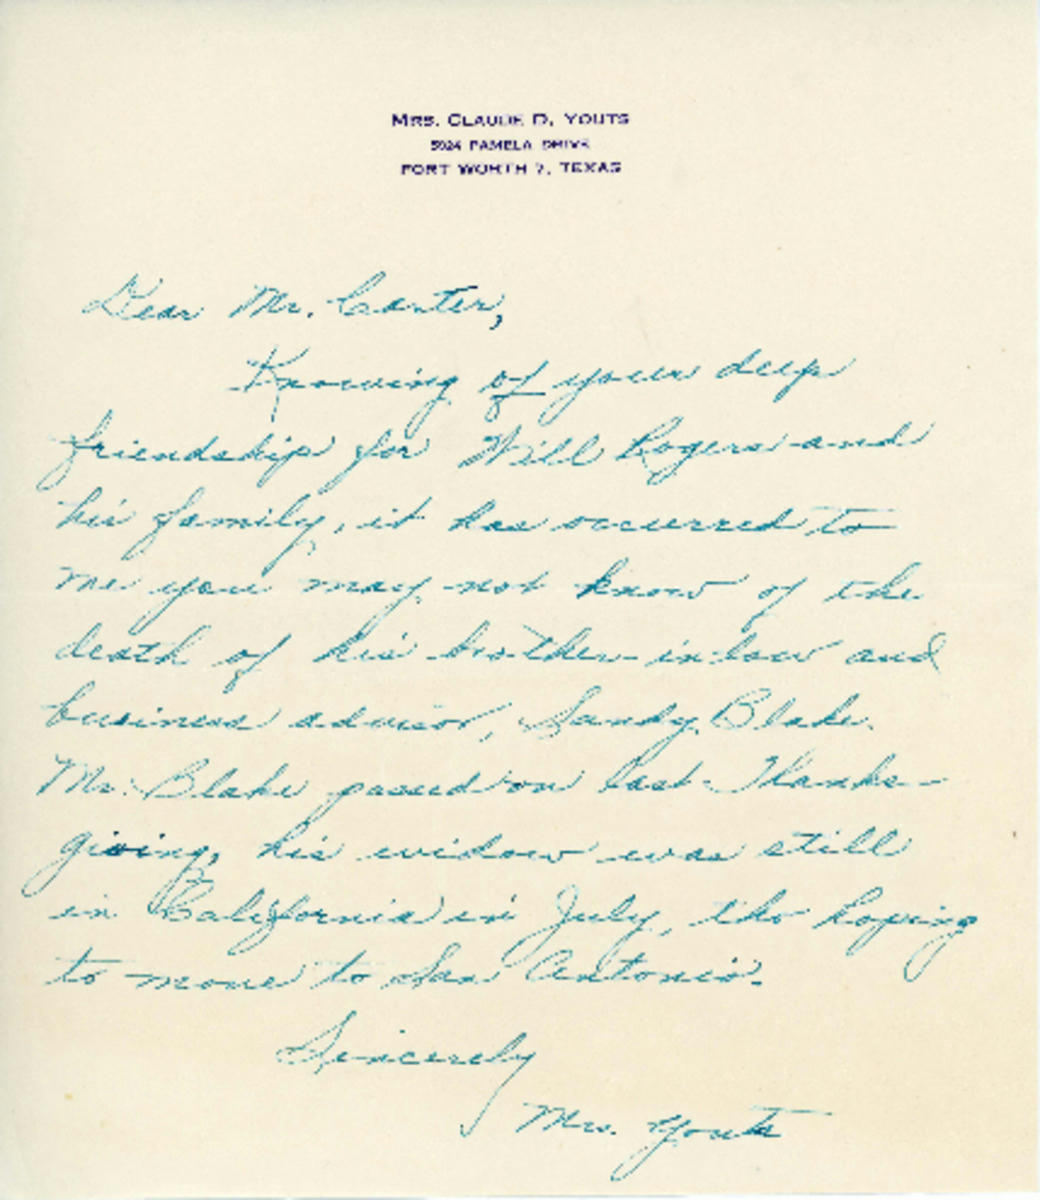 MRS. CLAUDE D. YOUTS
5024 PAMELA DRIVE
FORT WORTH 7, TEXAS
Dear Mr. Carter,
Knowing of your deep
friendship for Will Rogers and
his family, it has occurred to
me you may not know of the
death of his brother-in-law and
business advisor, Sandy Blake.
Mr. Blake passed on last Thanks-
giving, his widow was still
in California in July, tho hoping
to move to San Antonio.
Sincerely
Mrs. Youts